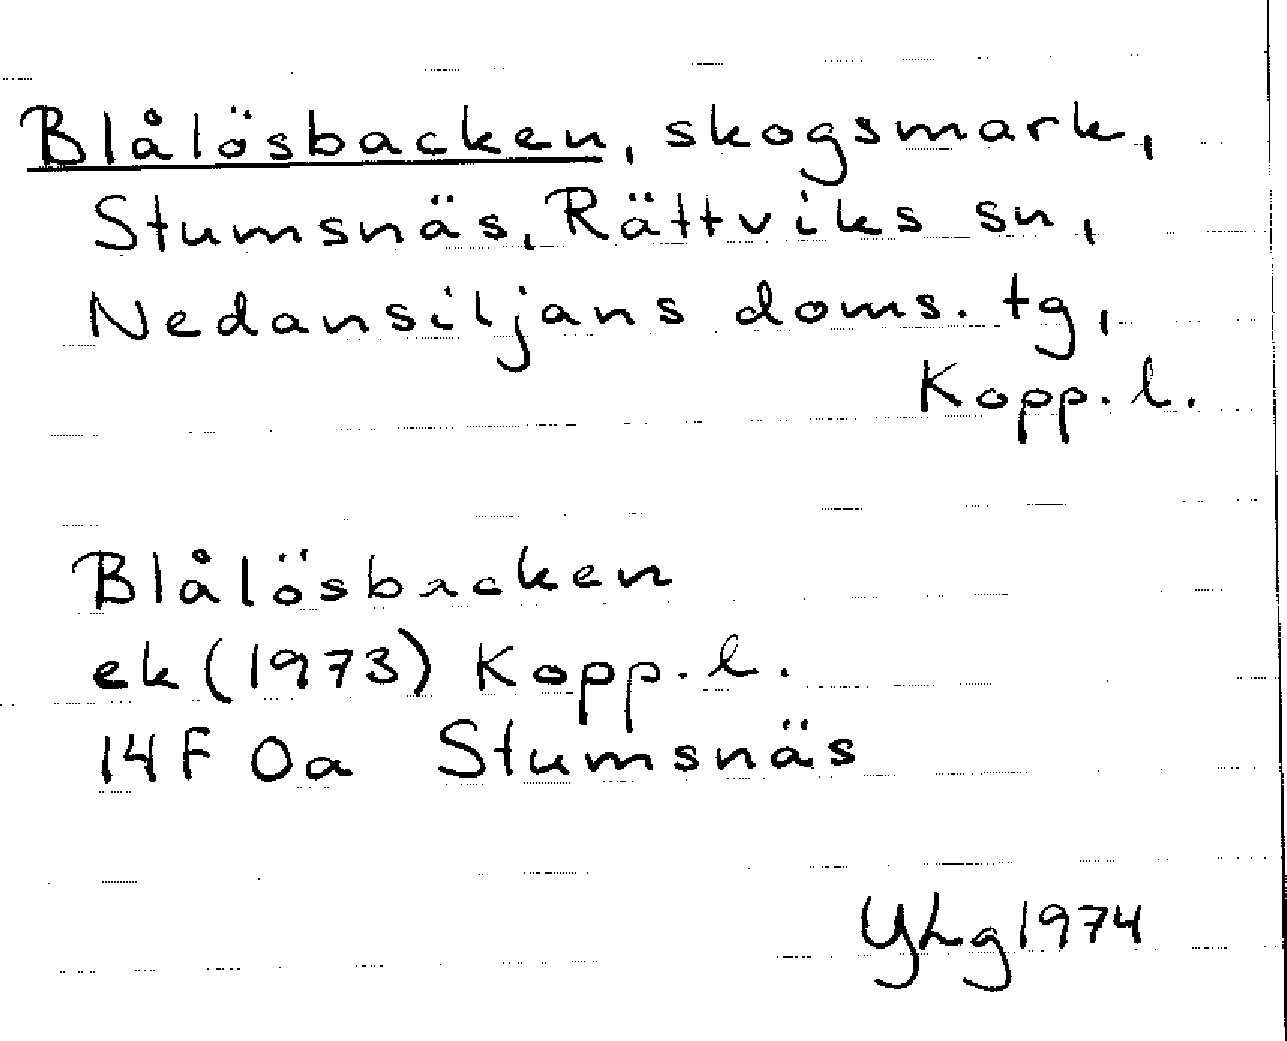 Blålösbacken, skogsmark,
Stumsnäs, Rättviks sn,
Nedansiljans doms. tg,
Kopp. l.
Blålösbacken
ek (1973) Kopp. l.
14F 0a Stumsnäs
YLg 1974